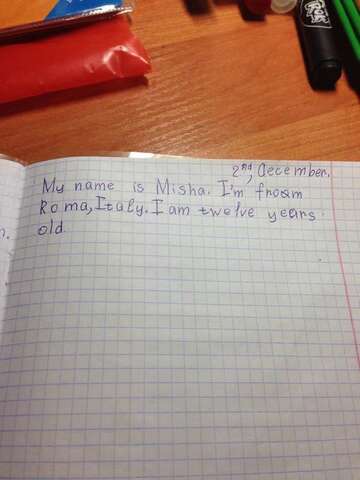 2nd, december.
My name is Misha. I'm from
Roma, Italy. I am twelve years
old